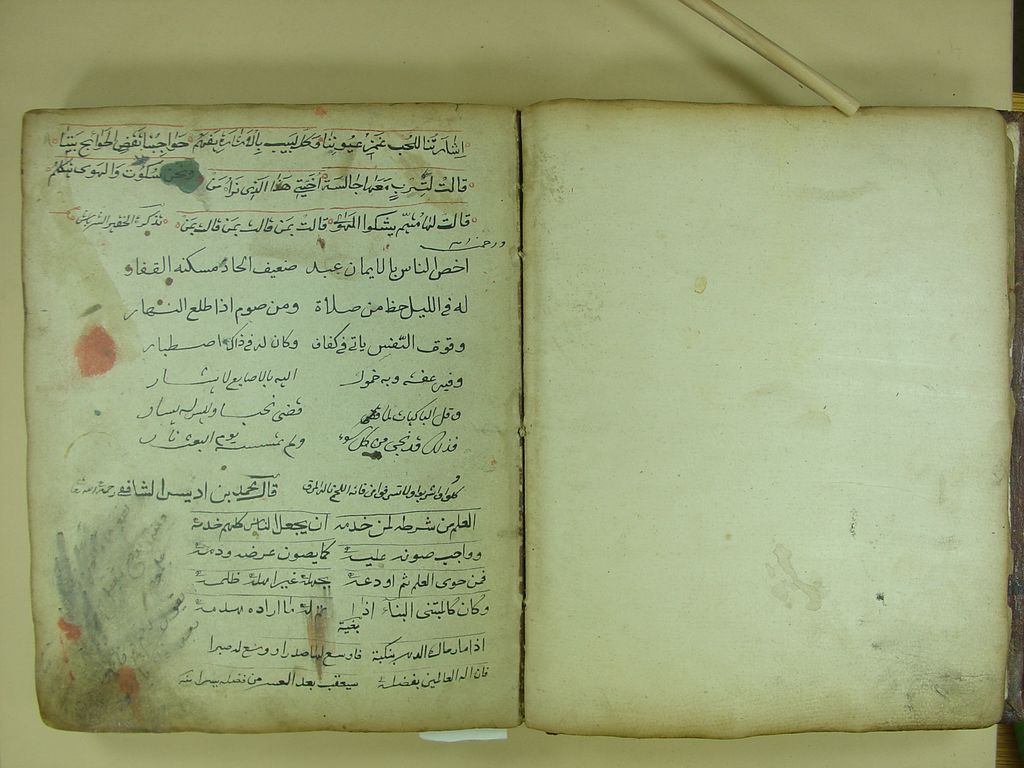 اشارتنا للحب غمز عيوننا وكل لبيب بالاشارة يفهم حواجبنا تقضي الحوائج بيننا
ونحن سكوت والهوى يتكلم
قالت لترب معها جالسة أختي هذا الذي نراه من
قالت لها متيم يشكوا الهوى قالت بمن قالت بمن قالت بمن
اخص الناس بالايمان عبد ضعيف الحاذ مسكنه القفار
له في الليل حظ من صلاة ومن صوم اذا طلع النهار
وقوت النفس ياتي في كفاف وكان له في ذاك اصطبار
وفيه عفة وبه خمول اليه بالاصابع لا يشار
وقل الباكيات لما قضى نحبا وليس له يسار
فذلك قد نجى من كل سوء ولم تمسسه يوم البعث نار
قال محمد بن ادريس الشافعي رحمه الله
العلم من شرطه لمن خدمه ان يجعل الناس كلهم خدمه
وواجب صونه عليه كما يصون عرضه ودمه
فمن حوى العلم ثم اودعه بجهله غير اهله ظلمه
وكان كالمبتني البناء اذا ما اراده هدمه
بغية
اذا ما رماك الدهر بنكبة فاوسع لها صدرا ووسع له صبرا
فان اله العالمين بفضله سيعقب بعد العسر من فضله يسرا